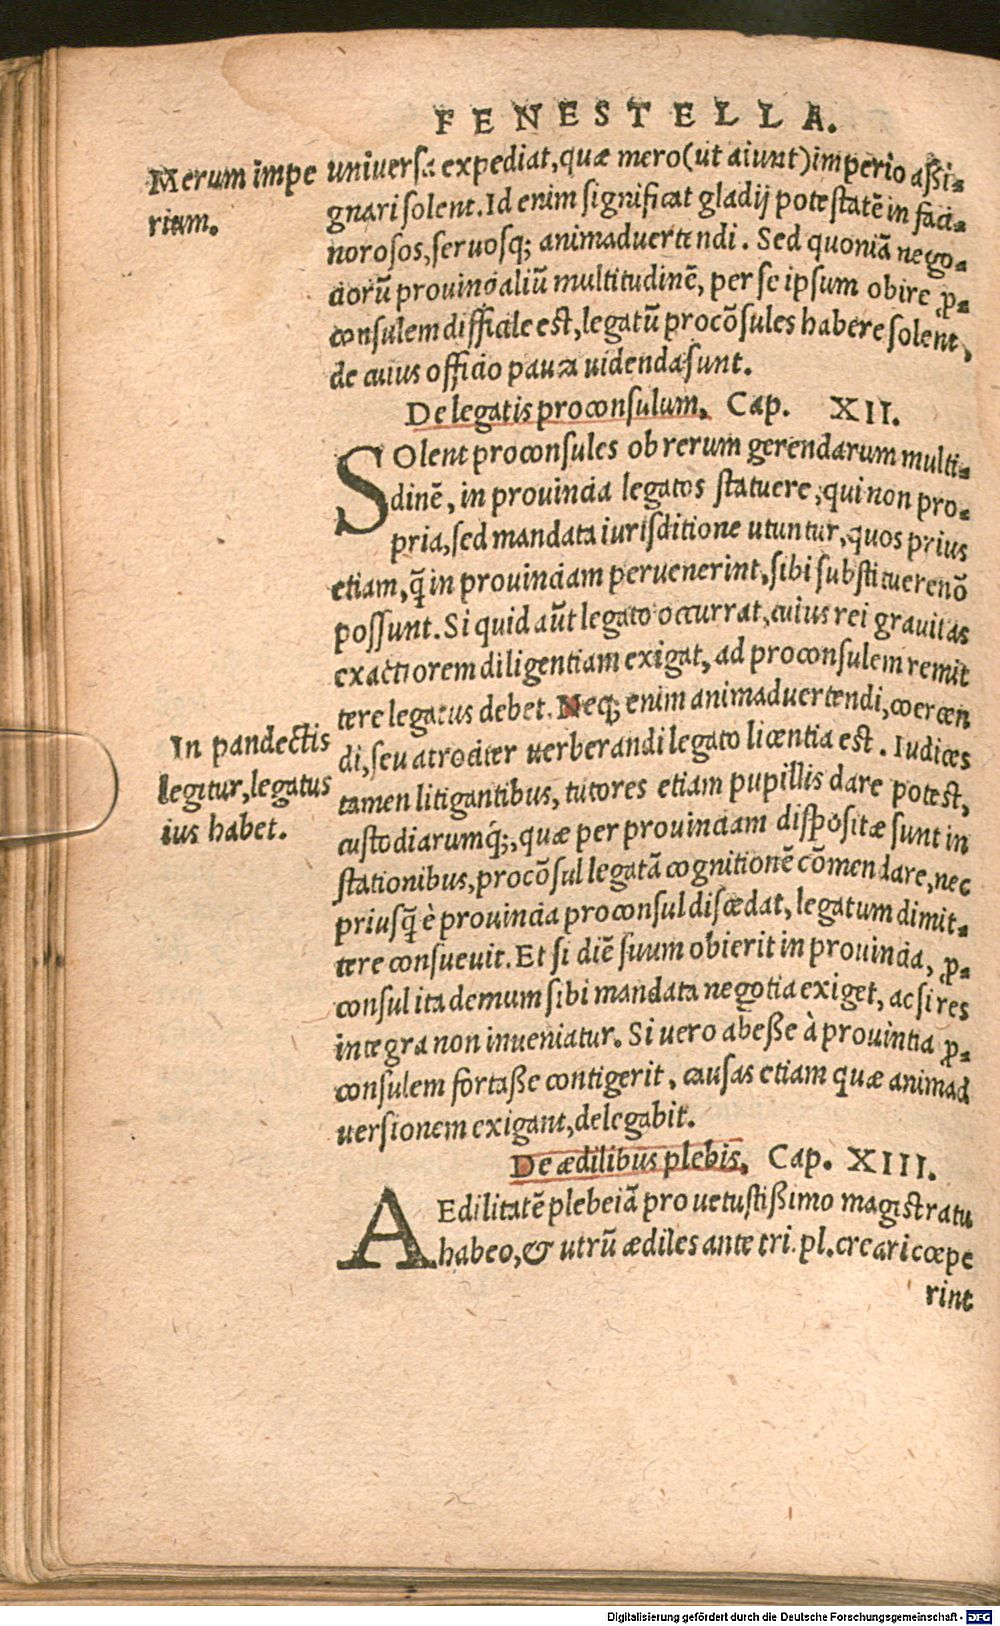 FENESTELLA.
Merum impe
rium.
universa expediat, quæ mero (ut aiunt) imperio aßi-
gnari solent. Id enim significat gladij potestatē in faci-
norosos, servosq; animadvertendi. Sed quoniā nego-
ciorū provincialiū multitudinē, per se ipsum obire ꝓ-
consulem difficile est, legatū procōsules habere solent,
de cuius officio pauca videnda sunt.
De legatis proconsulum. Cap. XII.
SOlent proconsules ob rerum gerendarum multi-
dinē, in provincia legatos statuere, qui non pro-
pria, sed mandata iurisditione utuntur, quos prius
etiam, q̄ in provinciam pervenerint, sibi substituere nō
possunt. Si quid aūt legato occurrat, cuius rei gravitas
exactiorem diligentiam exigat, ad proconsulem remit
tere legatus debet. Neq; enim animadvertendi, coercen
di, seu atrociter verberandi legato licentia est. Iudices
tamen litigantibus, tutores etiam pupillis dare potest,
custodiarumq́;, quæ per provinciam dispositæ sunt in
stationibus, procōsul legatā cognitionē cōmendare, nec
priusq̄ è provincia proconsul discedat, legatum dimit-
tere consuevit. Et si diē suum obierit in provincia, ꝓ-
consul ita demum sibi mandata negotia exiget, ac si res
integra non inveniatur. Si vero abeße à provintia ꝓ-
consulem fortaße contigerit, causas etiam quæ animad
versionem exigant, delegabit.
In pandectis
legitur, legatus
ius habet.
De ædilibus plebis. Cap. XIII.
AEdilitatē plebeiā pro vetustißimo magistratu
habeo, & utrū ædiles ante tri. pl. creari cœpe
rint
Digitalisierung gefördert durch die Deutsche Forschungsgemeinschaft - DFG